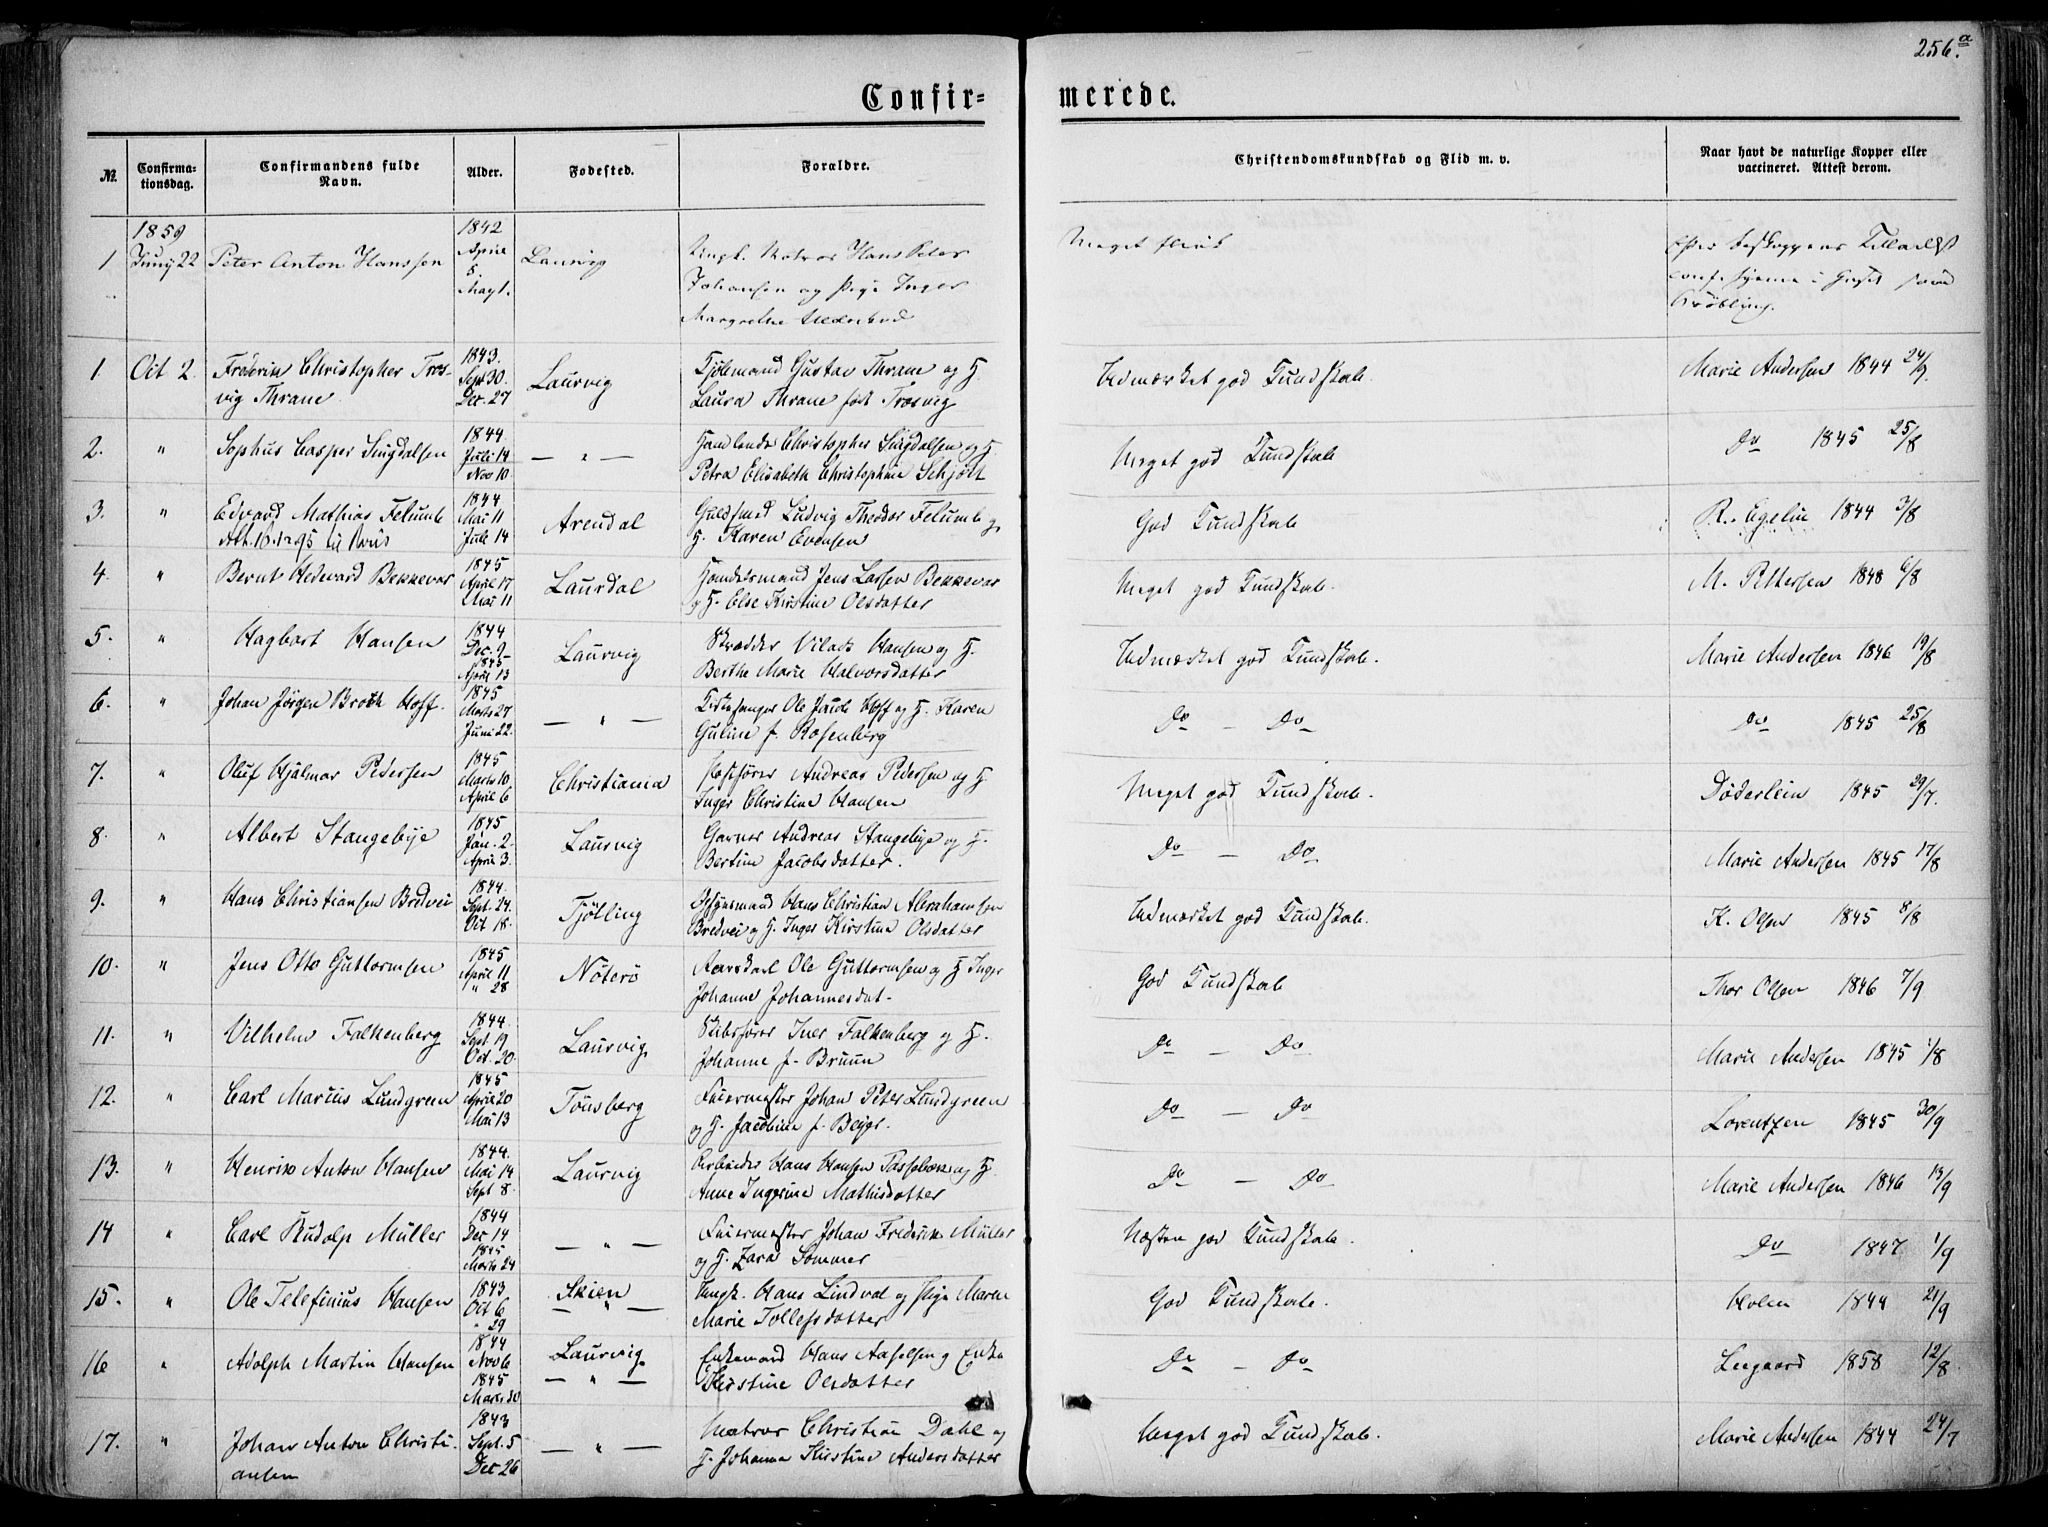 256.a
Confir- merede.
No. Confirma-tionsdag. Confirmandens fulde Navn. Alder. Fødested. Forældre. Christendomskundskab og Flid m. v. Naar havt de naturlige Kopper eller vaccineret. Attest derom.
1859 1842
1 Juny 22 Peter Anton Hanssen April 5. May 1. Laurvig Ungk. Matros Hans Peter Meget flink
Johansen og Pige Inger
Margrethe
1. Oct 2. Frederik Christopher Tros- 1843. Sept 30. Laurvig Gustav Thrane og H. Udmærket god Kundskab. Marie Andersen 1844 24/9.
vig Thrane. Dec. 27 Laura Thrane født Trosvig
2. " Sophus Casper Smgdalsen 1844. Juli 14 — " — Christopher Smgdalsen og H. Meget god Kundskab Do 1845 25/8
Nov 10. Petra Elisabeth Christophine Schjøtt
3. " Edvard Mathias Felumb 1844 Mai 11 Arendal Guldsmed Ludvig Theodor Felumb og God Kundskab R. Egelie 1844 3/8
Att. 16. 1-95 til Juli 14 H. Karen Evensen
4. " Bernt Hedevard Bekkevar 1845 April 17 Laurdal Jens Larsen Bekkevar Meget god Kundskab. M. Pettersen 1848 6/8
Mai 11 og H. Else Kirstine Olsdatter
5. " Hagbart Hansen 1844 Dec. 9 Laurvig Skrædder Vilads Hansen og H. Udmærket god Kundskab. Marie Andersen 1846 19/8
1845 April 13 Berthe Marie Halvorsdatter
6. " Johan Jørgen Broch Hoff. 1845 Marts 27 — " — Ole Jacob Hoff og H. Karen Do — Do Do 1845 25/8
Juni 22. Guline f. Rosenberg
7. " Oluf Hjalmar Pedersen 1845 Marts 10 Christiania Andreas Pedersen og H. Meget god Kundskab. Døderlein 1845 29/7.
April 6 Inger Christine Hansen
8. " Albert Stangebye 1845 Jan. 2. Laurvig Garver Andreas Stangebye og H. Do — Do Marie Andersen 1845 17/8
April 3. Bertine Jacobsdatter.
9. " Hans Christiansen Bredvei 1844. Sept. 24. Tjølling Hans Christian Abrahamsen Udmærket god Kundskab. K. Olsen 1845 8/8
Oct 18. Bredvei og H. Inger Kirstine Olsdatter
10. " Jens Otto Guttormsen 1845 April 11 Nøterø Ole Guttormsen og H Inger God Kundskab Thor Olsen 1846 7/9
" 28 Johanne Johannesdat.
11. " Vilhelm Falkenberg 1844. Sept. 19 Laurvig Skibsfører Iver Falkenberg og H. Do — Do Marie Andersen 1845 1/8
Oct. 20. Johanne f. Bruun
12. " Carl Marius Lundgreen 1845 April 20 Tønsberg Murermester Johan Peter Lundgreen Do — Do Lorentzen 1845 30/9
Mai 13 og H. Jacobine f. Beyer.
13. " Henrik Anton Hansen 1844. Mai 14 Laurvig Arbeider Hans Hansen Tassebæk og H. Do — Do Marie Andersen 1846 13/9
Sept 8. Anne Ingerine Mathisdatter
14 " Carl Rudolp Müller 1844 Dec 14 — " — Murermester Johan Frederik Müller Næsten god Kundskab. Do 1847 1/9
1845 Marts 24 og H. Zara Sommer
15. " Ole Telefinius Hansen 1843 Oct 6 Skien Ungk. Hans Lindval og Pige Maren God Kundskab. Holen 1844 21/9
" 29 — " — Marie Tollefsdatter
16 " Adolph Martin Hansen 1844 Nov 6 Laurvig Enkemand Hans Axelsen og Enke Do — Do Leegaard 1858 12/8
1845 — " — Kirstine Olsdatter
17. " Johan Anton Christi- 1843 Sept. 5 — " — Matros Christian Dahl og Meget god Kundskab. Marie Andersen 1844 24/7
ansen Dec 26 H. Johanne Kirstine Andersdatter